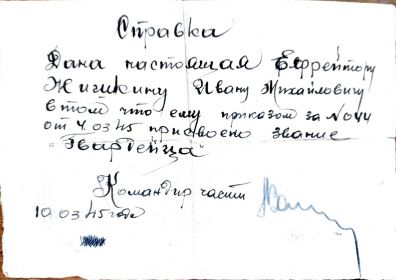 Справка
Дана настоящая Ефрейтору
Жишкину Ивану Михайловичу
в том что ему приказом за No 44
от 4.03.45 присвоено звание
"Гвардейца"
Командир части
10.03.45 года